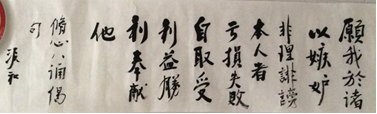 願我於諸
以嫉妒
非理誹謗
本人者
亏損失敗
自取受
利益勝
利奉献
他
脩心八誦偈
句